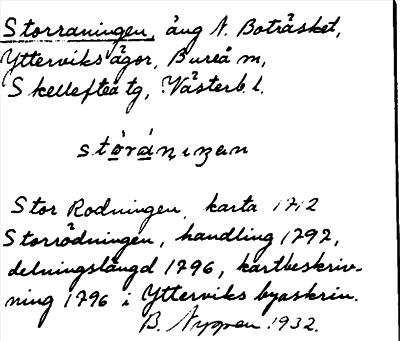 Storraningen, äng N. Boträsket,
Ytterviks ägor, Bureå m,
Skellefteå tg, Västerb. l.
Stor Rodningen, karta 1712
Storrödningen, handling 1792,
delningslängd 1796, kartbeskriv-
ning 1796 i Ytterviks byaskrin.
B. Nygren 1932.